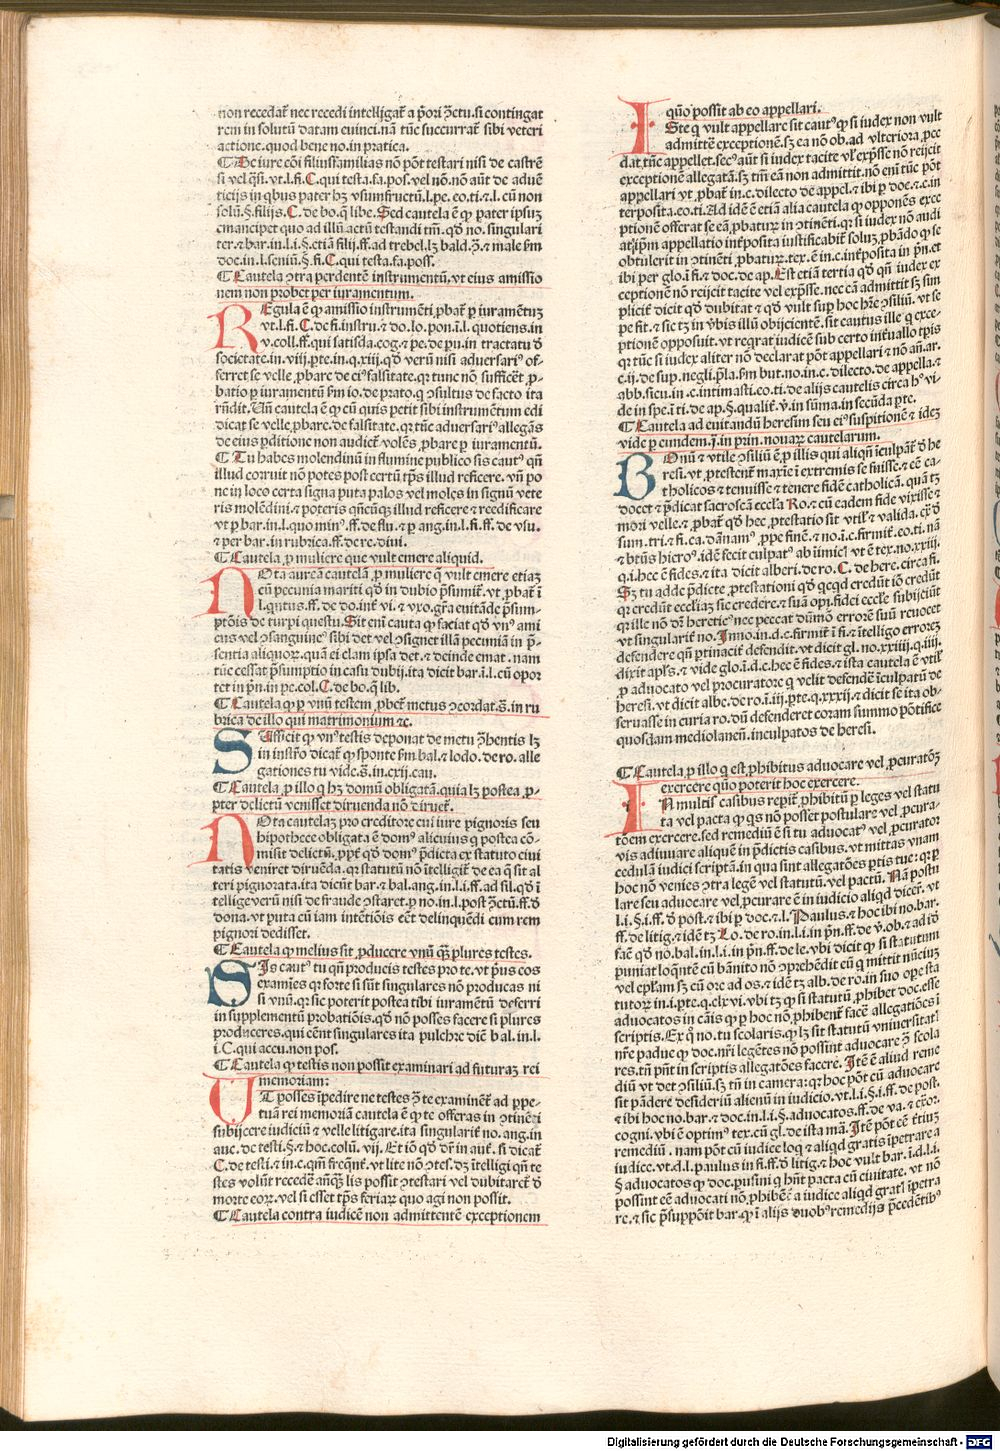 non recedat᷑ nec recedi intelligat᷑ a p̄ori ɔ̄ctu. si contingat
rem in solutū datam euinci. nā tūc succurrat᷑ sibi veteri
actione. quod bene no. in pratica.
¶ De iure cōi filiusfamilias nō pōt testari nisi de castrē
si vel q̄si. vt. l. fi. C. qui test. a. fa. pos. vel nō. nō aūt de aduē
ticijs in qbus pater hꝫ vsumfructū. l. pe. eo. ti. ⁊. l. cū non
solū. §. filijs. C. de bo. q̄ libe. Sed cautela ē ꝙ pater ipsuꝫ
emancipet quo ad illū actū testandi tm̄. qd̓ no. singulari
ter. ⁊ bar. in. l. i. §. etiā filij. ff. ad trebel. lꝫ bald. ɔ̄. ⁊ male ẜm
doc. in. l. seniū. §. fi. C. qui testa. fa. poss.
¶ Cautela ɔtra perdentē instrumentū. vt eius amissio
nem non probet per iuramentum.
REgula ē ꝙ amissio instrumēti ꝓbat᷑ ꝑ iuramētuꝫ
vt. l. fi. C. de fi. instru. ⁊ do. lo. pon. ī. l. quotiens. in
v. coll. ff. qui satisda. cog. ⁊ pe. de pu. in tractatu d̓
societate. in. viij. pte. in. q. xiij. qd̓ verū nisi aduersariꝰ of-
ferret se velle ꝓbare de eiꝰ falsitate. qꝛ tunc nō sufficēt ꝓ-
batio ꝑ iuramentū ẜm io. de prato. q ɔsultus de facto ita
rn̄dit. Vn̄ cautela ē ꝙ cū quis petit sibi instrumētum edi
dicat se velle ꝓbare. de falsitate. qꝛ tūc aduersariꝰ allegās
de eius ꝑditione non audiet᷑ volēs ꝓbare ꝑ iuramentū.
¶ Tu habes molendinū in flumine publico sis cautꝰ qn̄
illud corruit nō potes post certū tp̄s illud reficere. vn̄ po
ne in loco certa signa puta palos vel moles in signū vete
ris molēdini. ⁊ poteris qn̄cūqꝫ illud reficere ⁊ reedificare
vt ꝑ bar. in. l. quo minꝰ. ff. de flu. ⁊ ꝑ ang. in. l. fi. ff. de vsu.
⁊ per bar. in rubrica. ff. de re. diui.
¶ Cautela ꝓ muliere que vult emere aliquid.
NOta aureā cautelā ꝓ muliere q̄ vult emere etiaꝫ
cū pecunia mariti qd̓ in dubio p̄sumit᷑. vt ꝓbat᷑ ī
l. qntus. ff. de do. int᷑ vi. ⁊ vxo. gr̄a euitāde p̄sum-
ptōis de turpi questu. Sit eni cauta ꝙ faciat qd̓ vnꝰ ami
cus vel ɔsanguineꝰ sibi det vel ɔsignet illā pecuniā in p̄-
sentia aliquoꝝ. quā ei clam ipsa det. ⁊ deinde emat. nam
tūc cessat p̄sumptio in casu dubij. ita dicit bar. ī. l. cū opor
tet in p̄n. in pe. col. C. de bo. q̄ lib.
¶ Cautela ꝙ ꝑ vnū testem ꝓbet᷑ metus ɔcordat. s̄. in ru
brica de illo qui matrimonium ⁊c.
SUfficit ꝙ vnꝰ testis deponat de metu ɔ̄hentis lꝫ
in instr̄o dicat᷑ ꝙ sponte ẜm bal. ⁊ lodo. de ro. alle
gationes tu vide. s̄. in. cxij. cau.
¶ Cautela ꝓ illo q hꝫ domū obligatā. quia lꝫ postea ꝓ-
pter delictū venisset diruenda nō diruet᷑.
NOta cautelaꝫ pro creditore cui iure pignoris seu
hipothece obligata ē domꝰ alicuius q postea cō-
misit delictū. ꝓpt᷑ qd̓ domꝰ p̄dicta ex statuto ciui
tatis veniret diruēda. qꝛ statutū nō ītelligit᷑ de ea q̄ sit al
teri pignorata. ita dicūt bar. ⁊ bal. ang. in. l. i. ff. ad sil. qd̓ ī
tellige verū nisi de fraude ɔstaret. ꝓ no. in. l. post ɔ̄ctū. ff. d̓
dona. vt puta cū iam intētiōis eēt delinquēdi cum rem
pignori dedisset.
¶ Cautela ꝙ melius sit ꝓducere vnū qꝫ̄ plures testes.
SIs cautꝰ tu qn̄ producis testes pro te. vt prius eos
examīes qꝛ forte si sūt singulares nō producas ni
si vnū. qꝛ sic poterit postea tibi iuramētū deferri
in supplementū probatiōis. qd̓ nō posses facere si plures
produceres. qui eēnt singulares ita pulchre diē bal. in. l.
i. C. qui accu. non pos.
¶ Cautela ꝙ testis non possit examinari ad futuraꝫ rei
memoriam:
VT posses īpedire ne testes ɔ̄ te examinēt᷑ ad ꝑpe-
tuā rei memoriā cautela ē ꝙ te offeras in ɔtinēti
subijcere iudiciū ⁊ velle litigare. ita singularit᷑ no. ang. in
auc. de testi. §. ⁊ hoc. colū. vij. Et iō qd̓ dr̄ in auct᷑. si dicat᷑
C. de testi. ⁊ in. c. qm̄ freqn̄t᷑. vt lite nō ɔtes. dꝫ ītelligi qn̄ te
stes volūt recedē anꝗꝫ lis possit ɔtestari vel dubitaret᷑ d̓
morte eoꝝ. vel si esset tp̄s feriaꝝ quo agi non possit.
¶ Cautela contra iudicē non admittentē exceptionem
quō possit ab eo appellari.
ISte q vult appellare sit cautꝰ ꝙ si iudex non vult
admittē exceptionē. sꝫ ea nō ob. ad vlteriora ꝓce
dat. tūc appellet. secꝰ aūt si iudex tacite vl̓ exp̄sse nō reijcit
exceptionē allegatā. sꝫ tm̄ eā non admittit. nō eni tūc pōt
appellari vt ꝓbat᷑ in. c. dilecto de appel. ⁊ ibi ꝑ doc. ⁊. c. in
terposita. eo. ti. Ad idē ē etiā alia cautela ꝙ opponēs exce
ptionē offerat se eā ꝓbaturꝰ in ɔtinēti. qꝛ si iudex nō audi
at ip̄m appellatio int᷑posita iustificabit᷑ soluꝫ ꝓbādo ꝙ se
obtulerit in ɔtinēti ꝓbaturꝫ. tex. ē in. c. int᷑posita in p̄n. et
ibi per glo. ī fi. ⁊ doc. de ap. Est etiā tertia qd̓ qn̄ iudex ex
ceptionē nō reijcit tacite vel exp̄sse. nec eā admittit sꝫ sim
plicit᷑ dicit qd̓ dubitat ⁊ qd̓ vult sup hoc hr̄e ɔsiliū. vt se
pe fit. ⁊ sic tꝫ in v̓bis illū obijcientē. sit cautus ille q exce-
ptionē opposuit. vt reqrat iudicē sub certo int᷑uallo tp̄is
qꝛ tūc si iudex aliter nō declarat pōt appellari ⁊ nō an̄. ar.
c. ij. de sup. negli. p̄la. ẜm but. no. in. c. dilecto. de appella. ⁊
abb. sicu. in. c. intimasti. eo. ti. de alijs cautelis circa hꝰ vi-
de in spe. ī ti. de ap. §. qualit᷑. v̓. in sūma. in secūda pte.
¶ Cautela ad euitandū heresim seu eiꝰ suspitionē ⁊ ideꝫ
vide ꝑ eundem. ī. in prin. nouaꝝ cautelarum.
BOnū ⁊ vtile ɔsiliū ē ꝓ illis qui aliqn̄ īculpāt᷑ d̓ he
resi. vt ꝓtestent᷑ maxīe ī extremis se fuisse. ⁊ eē ca-
tholicos ⁊ tenuisse ⁊ tenere fidē catholicā. quā tꝫ
docet ⁊ p̄dicat sacroscā eccl̓a Ro. ⁊ cū eadem fide vixisse ⁊
mori velle. ⁊ ꝓbat᷑ qd̓ hec ꝓtestatio sit vtil̓ ⁊ valida. ex̄ d̓
sum. tri. ⁊ fi. ca. dānamꝰ. ꝓpe finē. ⁊ no. ī. c. firmit᷑. eo. ti. nā
⁊ btūs hieroꝰ. idē fecit culpatꝰ ab īimicꝭ vt ē tex. no. xxiij.
q. i. hec ē fides. ⁊ ita dicit alberi. de ro. C. de here. circa fi.
Sꝫ tu adde p̄dicte ꝓtestationi qd̓ qcqd credūt iō credūt
qꝛ credūt eccl̓iaꝫ sic credere. ⁊ suā opi. fidei eccl̓ie subijciūt
qꝛ ille nō dr̄ hereticꝰ nec peccat dūmō errorē suū reuocet
vt singularit᷑ no. Inno. in. d. c. firmit᷑ ī fi. ⁊ ītelligo erroreꝫ
defendere qn̄ ꝑtinacit᷑ defendit. vt dicit gl. no. xxiiij. q. iij.
dixit apl̓s. ⁊ vide glo. ī. d. c. hec ē fides. ⁊ ista cautela ē vtil̓
ꝓ aduocato vel procuratore q velit defendē īculpatū de
heresi. vt dicit albe. de ro. ī. iij. pte. q. xxxij. ⁊ dicit se ita ob-
seruasse in curia ro. dū defenderet coram summo pōtifice
quosdam mediolanen̄. inculpatos de heresi.
¶ Cautela ꝓ illo q est ꝓhibitus aduocare vel ꝓcuratōꝫ
exercere quō poterit hoc exercere.
IN multis casibus reꝑit᷑ ꝓhibitū ꝑ leges vel statu
ta vel pacta ꝙ qs nō posset postulare vel ꝓcura-
tōem exercere. sed remediū ē si tu aduocatꝰ vel ꝓcurator
vis adiuuare aliquē in p̄dictis casibus. vt mittas vnam
cedulā iudici scriptā. in qua sint allegatōes ꝑtis tue: qꝛ ꝑ
hoc nō venies ɔtra legē vel statutū. vel pactū. Nā postu
lare seu aduocare vel ꝓcurare ē in iudicio aliqd dicer̄. vt
l. i. §. i. ff. d̓ post. ⁊ ibi ꝑ doc. ⁊. l. Paulus. ⁊ hoc ibi no. bar.
ff. de litig. ⁊ idē tꝫ Lo. de ro. in. l. i. in p̄n. ff. de v̓. ob. ⁊ ad id
faē qd̓ no. bal. in. l. i. in p̄n. ff. de le. vbi dicit ꝙ si statutum
puniat loqn̄tē cū bānito nō ɔprehēdit eū q mittit nūciuꝫ
vel epl̓am sꝫ cū ore ad os. ⁊ idē tꝫ alb. de ro. in suo ope sta
tutoꝝ in. i. pte. q. clx vi. vbi tꝫ ꝙ si statutū ꝓhibet doc. esse
aduocatos in cāis ꝙ ꝑ hoc nō ꝓhibent᷑ facē allegatiōes ī
scriptis. Ex q̄ no. tu scolaris. ꝙ lꝫ sit statutū vniuersitatꝭ
nr̄e padue ꝙ doc. nr̄i legētes nō possint aduocare ɔ̄ scola
res. tn̄ pn̄t in scriptis allegatōes facere. Itē ē aliud reme
diū vt det ɔsiliū. sꝫ tn̄ in camera: qꝛ hoc pōt cū aduocare
sit pādere desideriū alienū in iudicio. vt. l. i. §. i. ff. de post.
⁊ ibi hoc no. bar. ⁊ doc. in. l. i. §. aduocatos. ff. de va. ⁊ exor.
cogni. vbi ē optimꝰ tex. cū gl. de ista mā. Itē pōt eē t̓tiuꝫ
remediū. nam pōt cū iudice loq ⁊ aliqd gratis īpetrare a
iudice. vt. d. l. paulus in fi. ff. d̓ litig. ⁊ hoc vult bar. ī. d. l. i.
§. aduocatos ꝙ doc. ꝑusini q hn̄t pacta cū ciuitate. vt nō
possint eē aduocati nō ꝓhibēt᷑ a iudice aliqd gratꝭ īpetra
re. ⁊ sic p̄suppōit bar. ꝙ ī alijs duobꝰ remedijs p̄cedētibꝰ
Digitalisierung gefördert durch die Deutsche Forschungsgemeinschaft - DFG